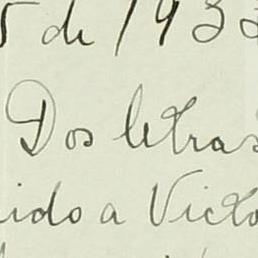 5 de 1933
Dos letras
ido a Victo